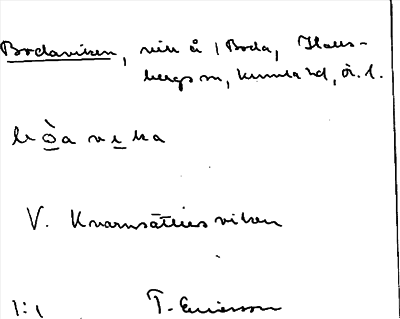 Bodaviken, vik å 1 Boda, Hals-
bergs sn, Kumla hd, Ör. l.
bòa vika
V. Kvarnsätters viken
1:1 T. Ericsson